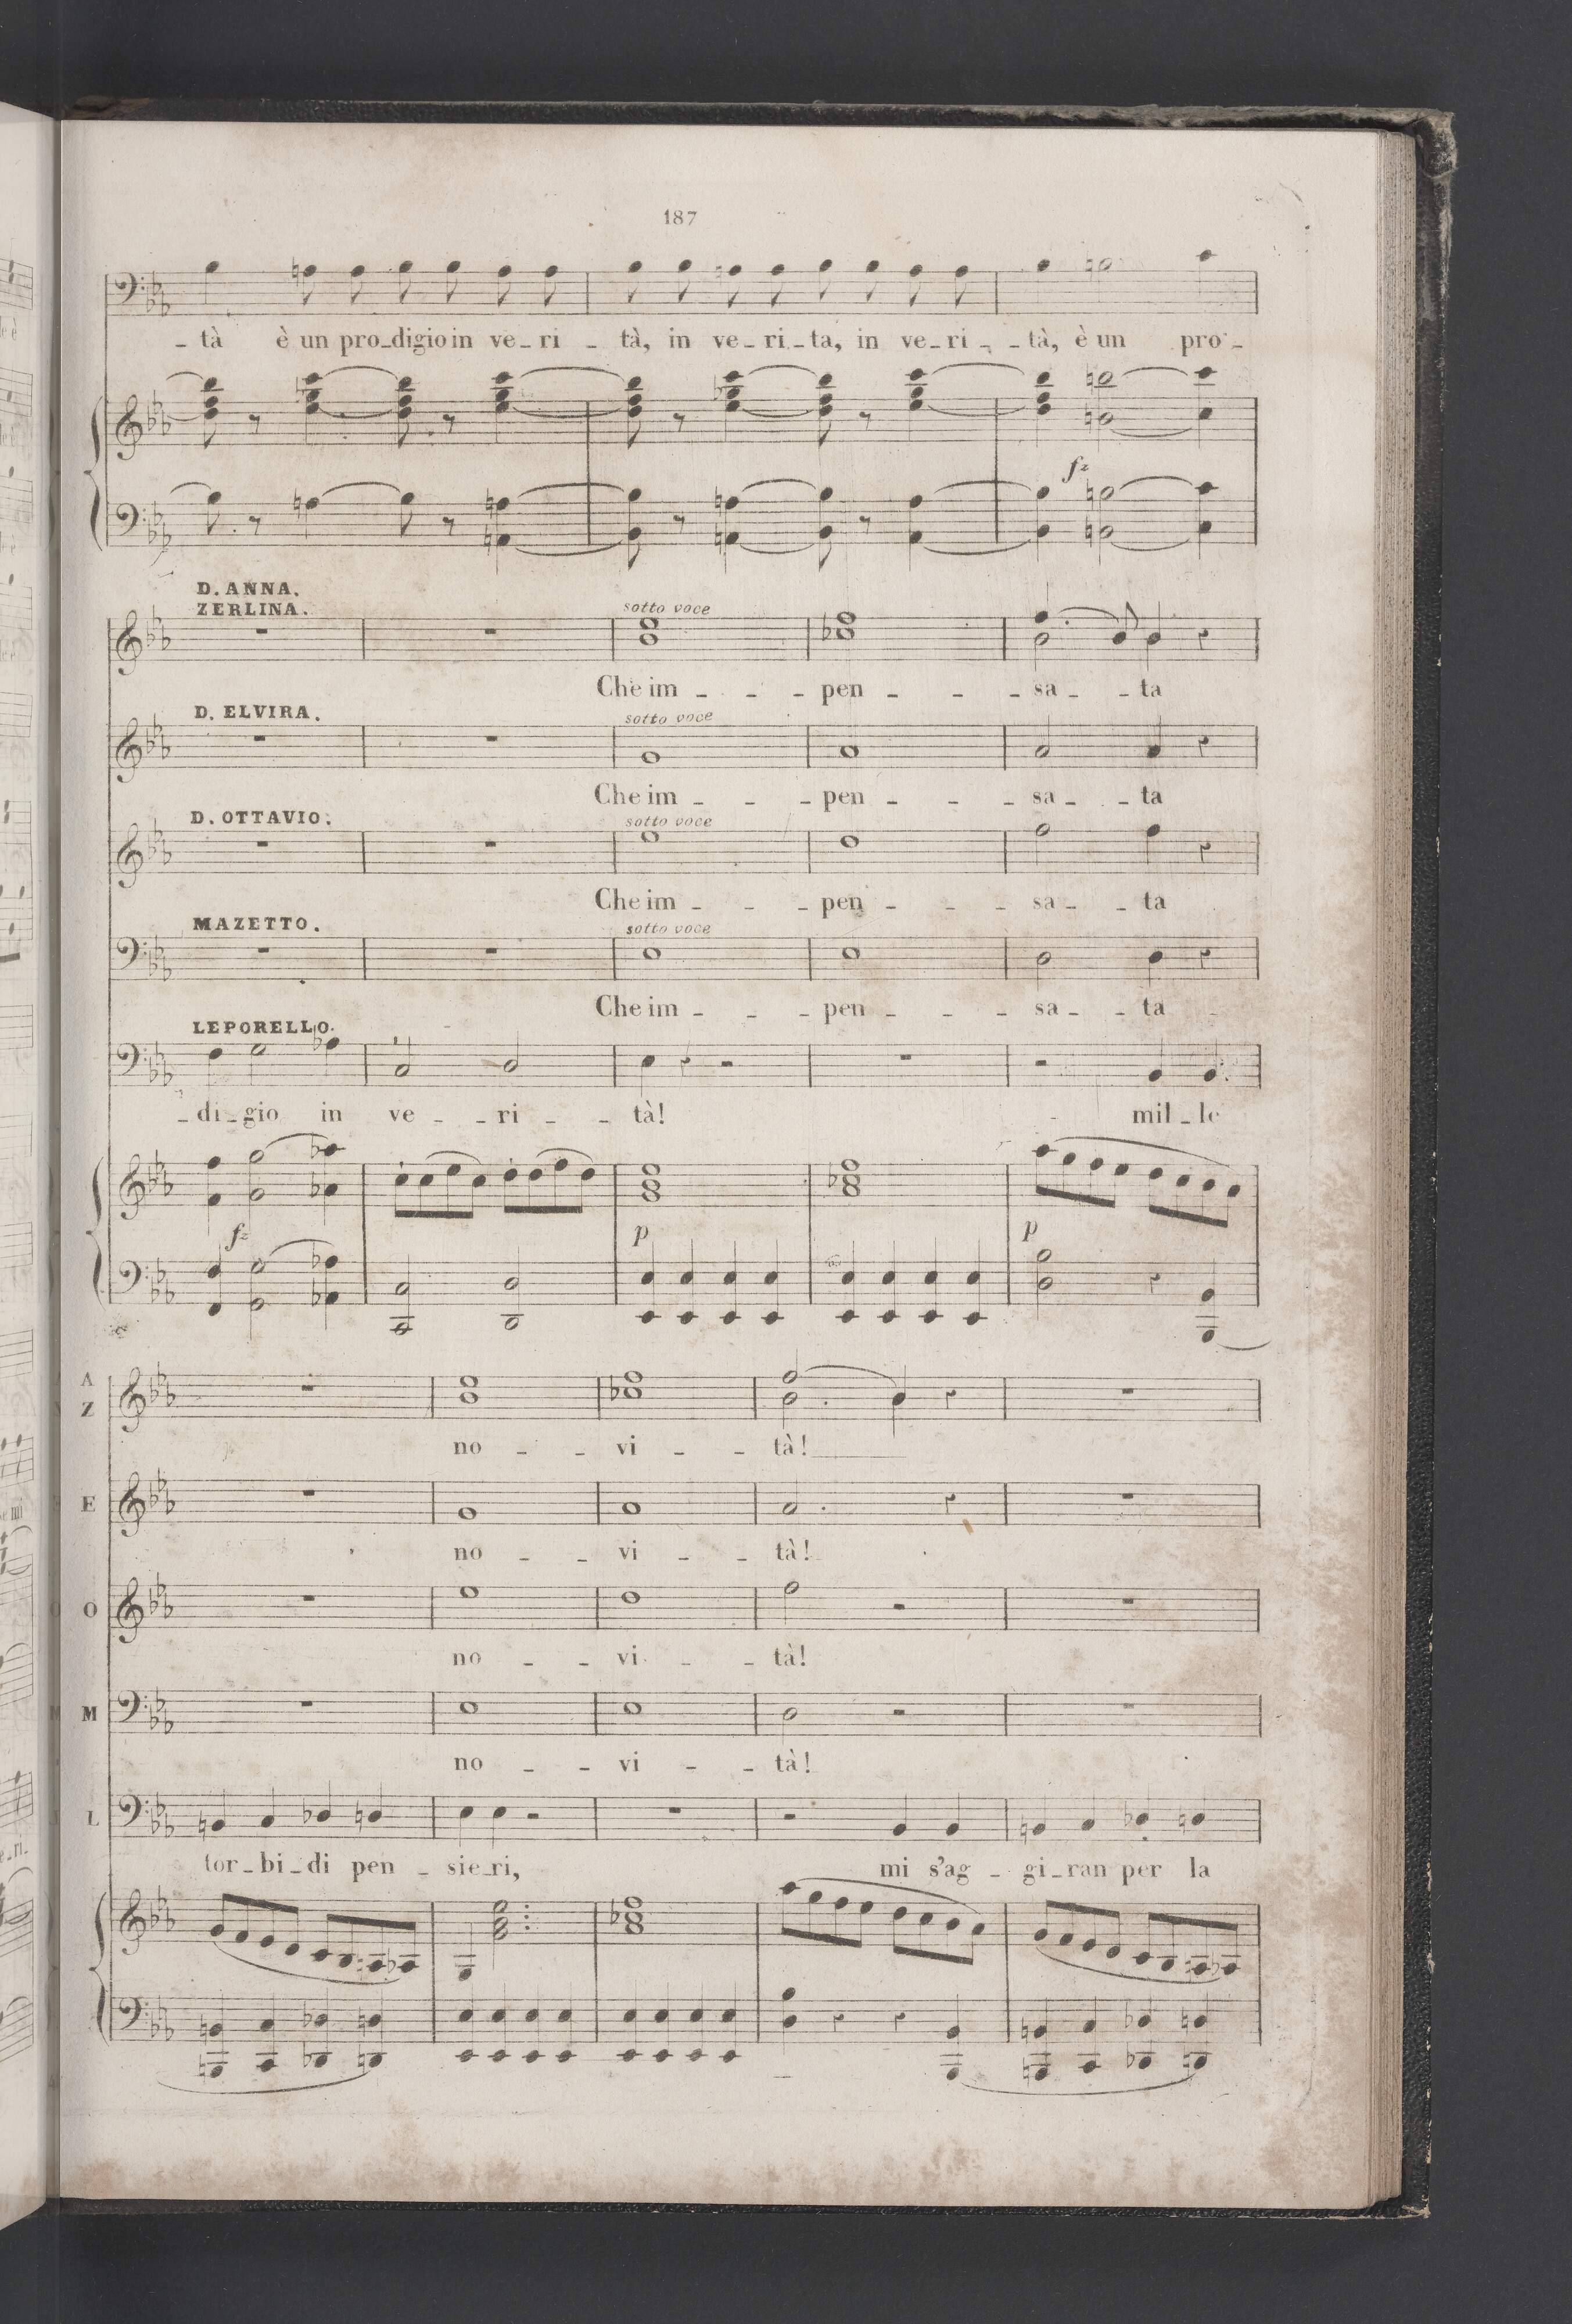 187
_ tà è un pro_digio in ve_ri _ tà, in ve_ri_ta, in ve_ri _ _ tà, è un pro _
fz
D. ANNA.
ZERLINA.
sotto voce
Che im _ _ _ pen _ _ _ sa _ _ ta
D. ELVIRA.
sotto voce
Che im _ _ _ pen _ _ _ sa _ _ ta
D. OTTAVIO.
sotto voce
Che im _ _ _ pen _ _ _ sa _ _ ta
MAZETTO.
sotto voce
Che im _ _ _ pen _ _ _ sa _ _ ta
LEPORELLO.
_ di_gio in ve _ _ ri _ _ tà! mil_le
fz p p
A
Z
no _ _ vi _ _ tà!
E
no _ _ vi _ _ tà!
O
no _ _ vi _ _ tà!
M
no _ _ vi _ _ tà!
L
tor_bi_di pen _ sie_ri, mi s'ag _ gi_ran per la